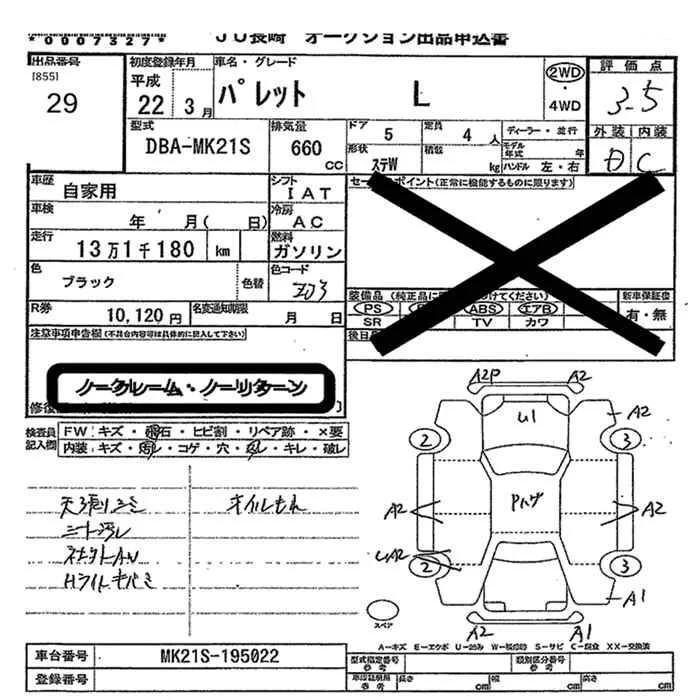 *0007327*
JU長崎 オークション出品申込書
出品番号
[855]
29
初度登録年月
平成
22 3月
車名・グレード
パレット L
2WD
・
4WD
評価点
3.5
外装 内装
D C
型式
DBA-MK21S
排気量
660
CC
ドア 5
定員 4 人
形状 ステW
積数 kg
ディーラー・並行
モデル年式 年
ハンドル 左・右
車歴
自家用
シフト
IAT
車検
年 月( 日)
冷房
AC
走行
13万1千180 km
燃料
ガソリン
色
ブラック
色替
色コード
ZJ3
R券
10,120円
名変通知期限
月 日
セールスポイント(正常に機能するものに限ります)
装備品 (純正品に
つけてください)
PS ABS エアB
SR TV カワ
新車保証書
有・無
注意事項申告欄 (不具合内容等は具体的に記入して下さい)
ノークレーム・ノーリターン
検査員
記入欄
FW:キズ・飛石・ヒビ割・リペア跡・×要
内装:キズ・汚レ・コゲ・穴・スレ・キレ・破レ
天張りユミ
シート汚レ
オイルもれ
Hライトキバミ
A2P A2
U1
A2
2 3
A2
Pハゲ
A2
UA2
2 3
A1
A2 A1
スペア
A-キズ E-エクボ U-凹み W-板修跡 S-サビ C-腐食 XX-交換済
車台番号
MK21S-195022
登録番号
型式指定番号
参考
類別区分番号
参考
車検証記載
参考
長さ cm
幅 cm
高さ cm